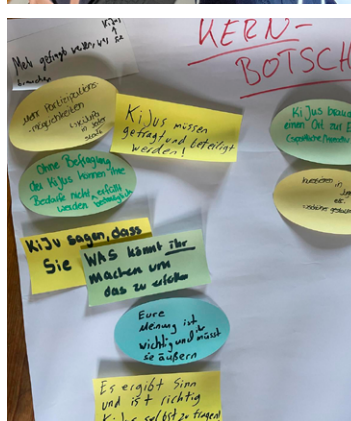 KERN-
BOTSCH
KiJus
Mehr gefragt werden, was sie
brauchen
Mehr Partizipations-
möglichkeiten
in jeder
KiJus müssen
gefragt und beteiligt
werden!
Ohne Befragung
der KiJus können ihre
Bedarfe nicht erfüllt
werden
KiJu sagen, dass
Sie
WAS könnt ihr
machen um
das zu
Eure
Meinung ist
wichtig und ihr müsst
sie äußern
Es ergibt Sinn
und ist richtig
KiJus selbst zu fragen!
KiJus
einen Ort